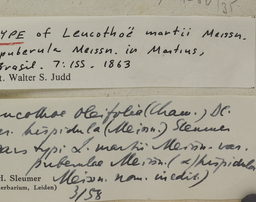 TYPE of Leucothoë martii Meissn.
puberula Meissn. in Martius,
Brasil. 7:155. 1863
t. Walter S. Judd
eucothoe oleifolia (Cham.) DC.
ar. hispidula (Meissn.) Sleumer
pars typi L. martii Meissn. var.
puberulae Meissn. (α/hispidula
H. Sleumer Meissn. nom. inedit.)
erbarium, Leiden) 3/58